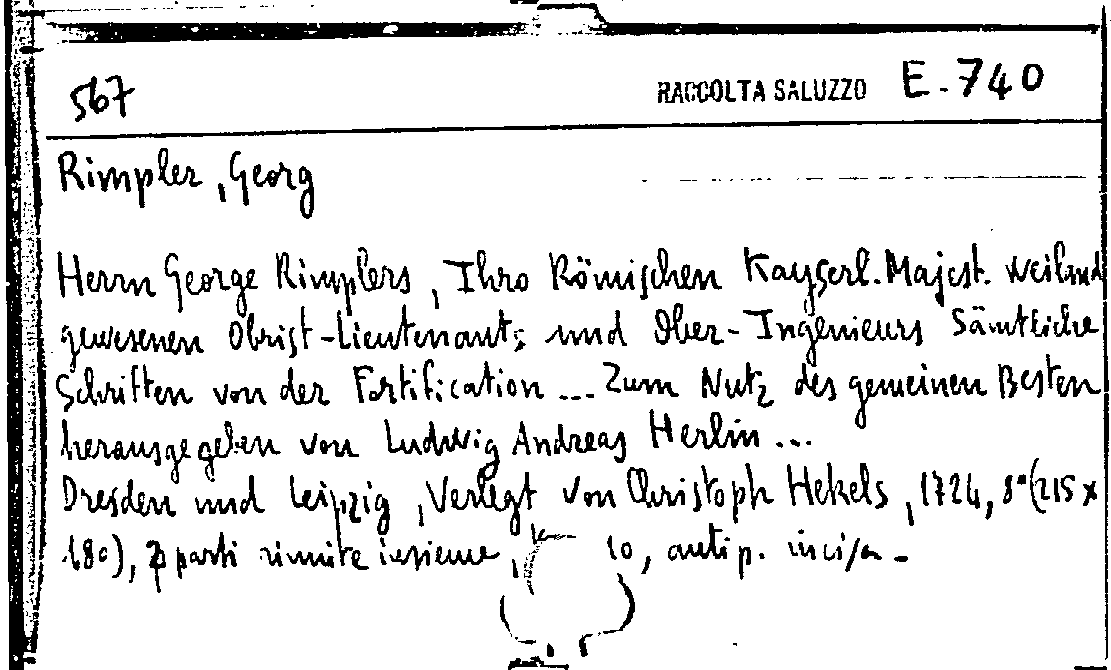 567 RACCOLTA SALUZZO E.740
Rimpler, Georg
Herrn George Rimplers, Ihro Römischen Kayserl. Majest. weiland
gewesenen Obrist-Lieutenants und Ober-Ingenieurs Sämtliche
Schriften von der Fortification ... Zum Nutz des gemeinen Besten
herausgegeben von Ludwig Andreas Herlin ...
Dresden und Leipzig, Verlegt von Christoph Hekels, 1724, 8° (215 x
180), parti riunite insieme, 10, antip. incisa -